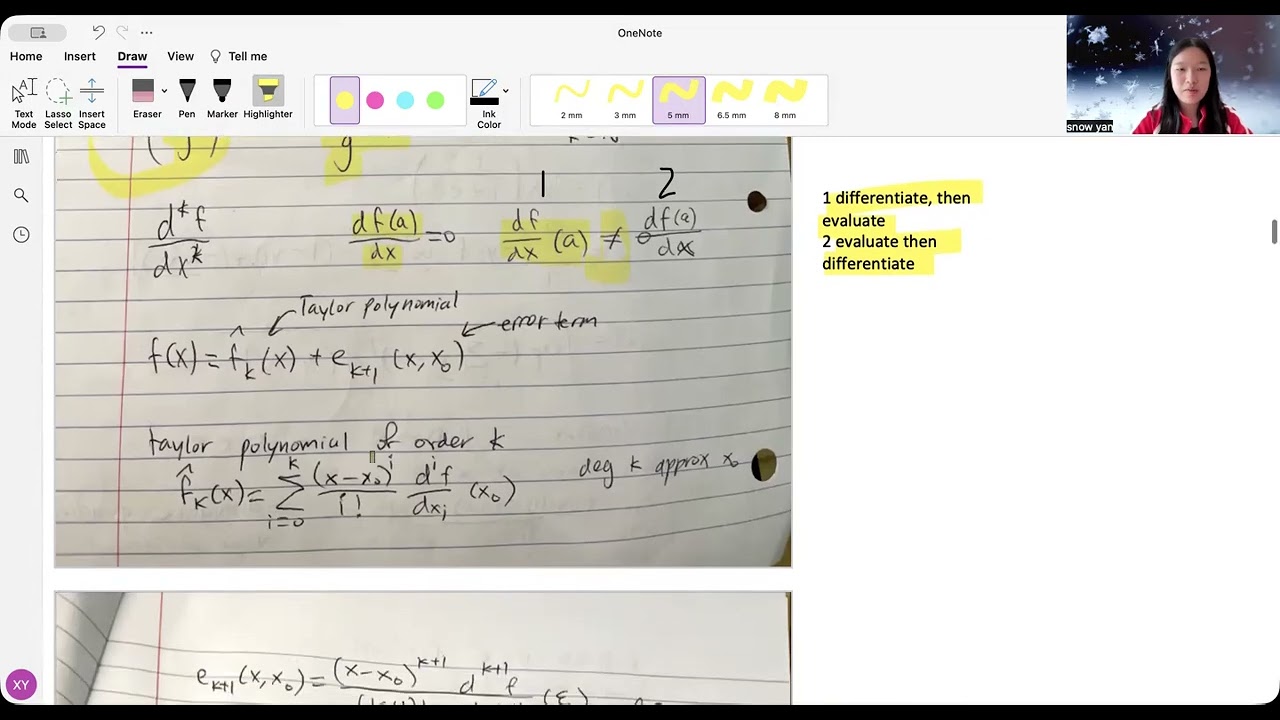 OneNote
Home Insert Draw View Tell me
Text Mode Lasso Select Insert Space Eraser Pen Marker Highlighter Ink Color 2 mm 3 mm 5 mm 6.5 mm 8 mm
snow yan
y
1 2
d^k f / dx^k df(a)/dx = 0 df/dx (a) ≠ df(a)/dx
1 differentiate, then
evaluate
2 evaluate then
differentiate
Taylor polynomial
error term
f(x) = f̂_k(x) + e_{k+1}(x, x_0)
taylor polynomial of order k
f̂_k(x) = Σ_{i=0}^{k} (x-x_0)^i / i! d^i f / dx_i (x_0) deg k approx x_0
e_{k+1}(x, x_0) = (x-x_0)^{k+1} d^{k+1} f (ε)
XY